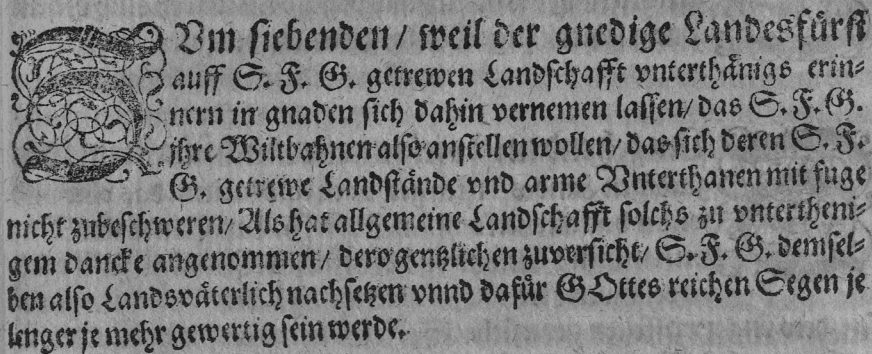 ZVm siebenden / weil der gnedige Landesfürst
auff S. F. G. getrewen Landschafft vnterthänigs erin-
nern in gnaden sich dahin vernemen lassen / das S. F. G.
jhre Wiltbahnen also anstellen wollen / das sich deren S. F.
G. getrewe Landstände vnd arme Vnterthanen mit fuge
nicht zubeschweren / Als hat allgemeine Landschafft solchs zu vntertheni-
gem dancke angenommen / dero gentzlichen zuversicht / S. F. G. demsel-
ben also Landsväterlich nachsetzen vnnd dafür GOttes reichen Segen je
lenger je mehr gewertig sein werde.